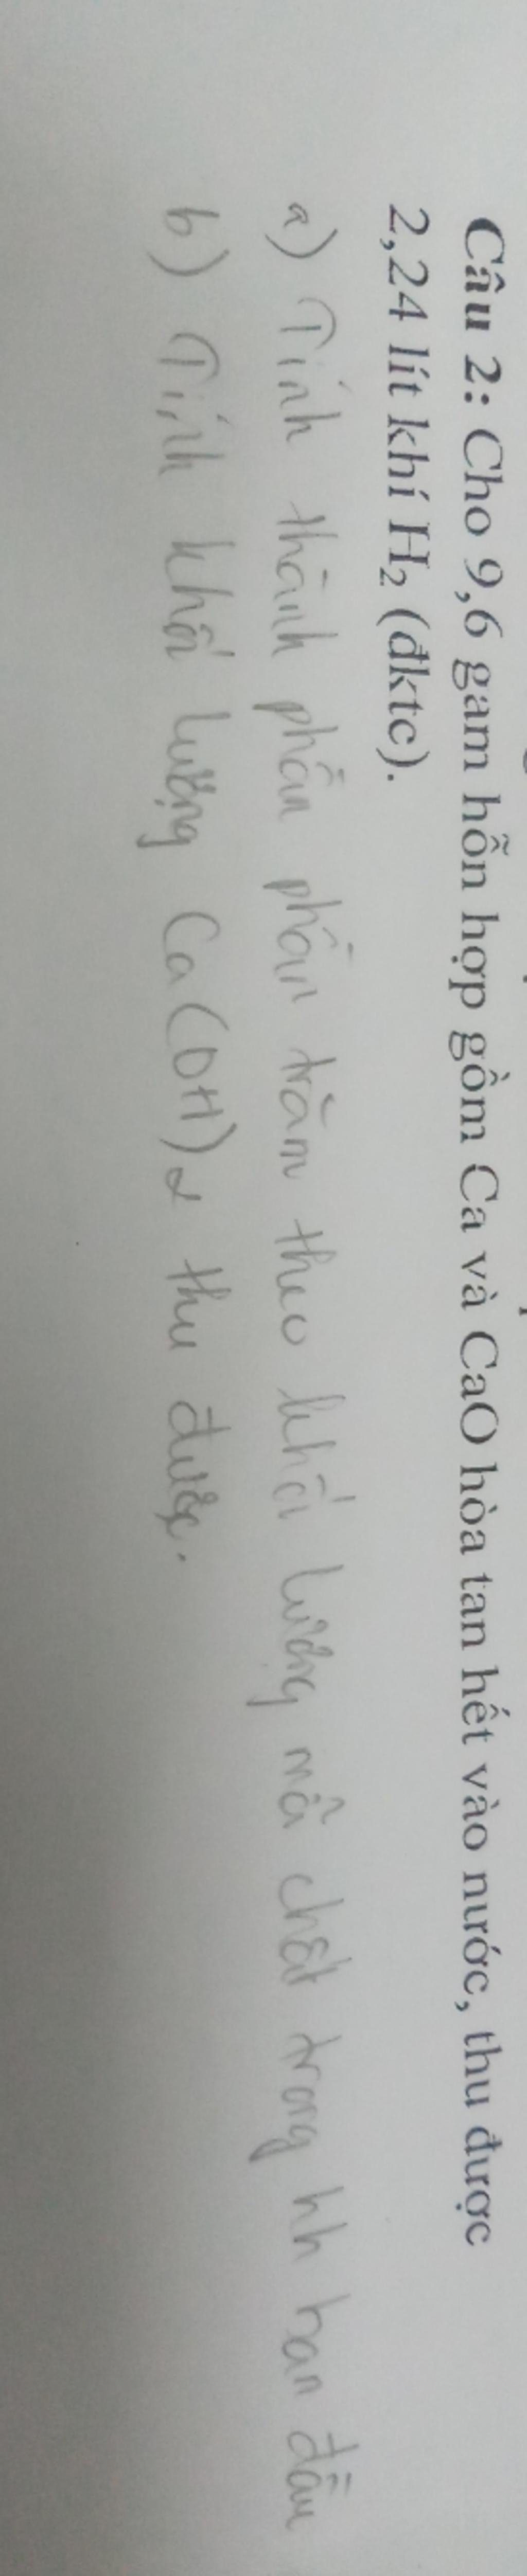 Câu 2: Cho 9,6 gam hỗn hợp gồm Ca và CaO hòa tan hết vào nước, thu được
2,24 lít khí H₂ (đktc).
a) Tính thành phần phần trăm theo khối lượng mỗi chất trong hh ban đầu
b) Tính khối lượng Ca(OH)₂ thu được.